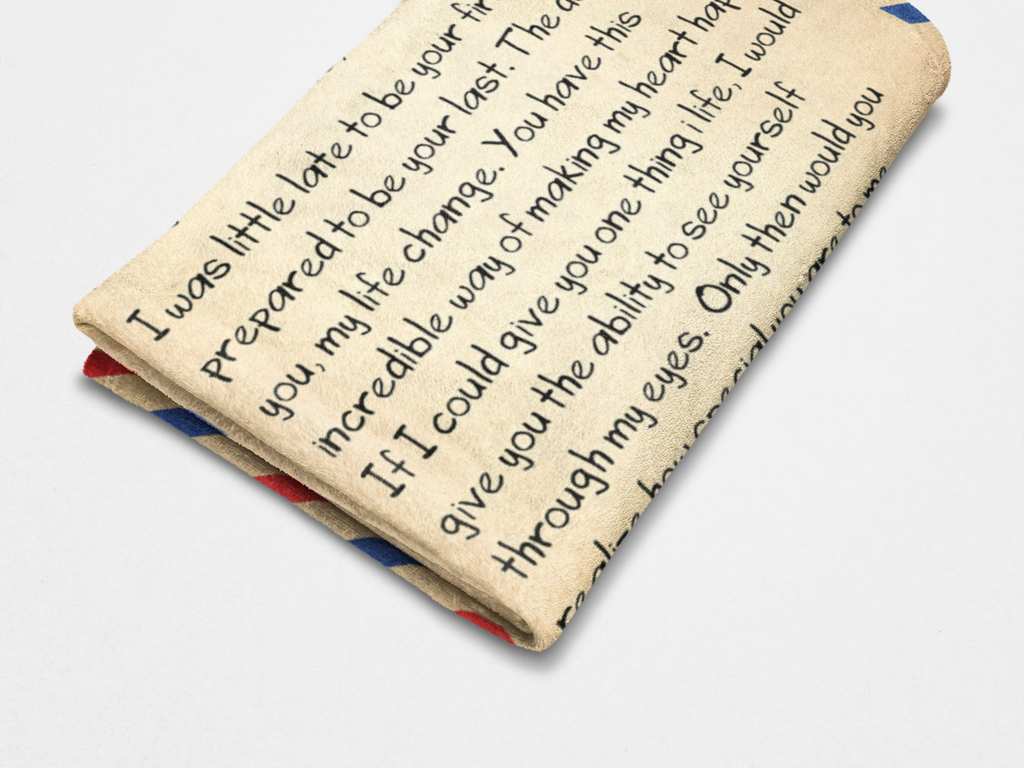 I was little late to be your
prepared to be your last. The
you, my life change. You have this
incredible way of making my heart
If I could give you one thing i life, I would
give you the ability to see yourself
through my eyes. Only then would you
how special you are to me